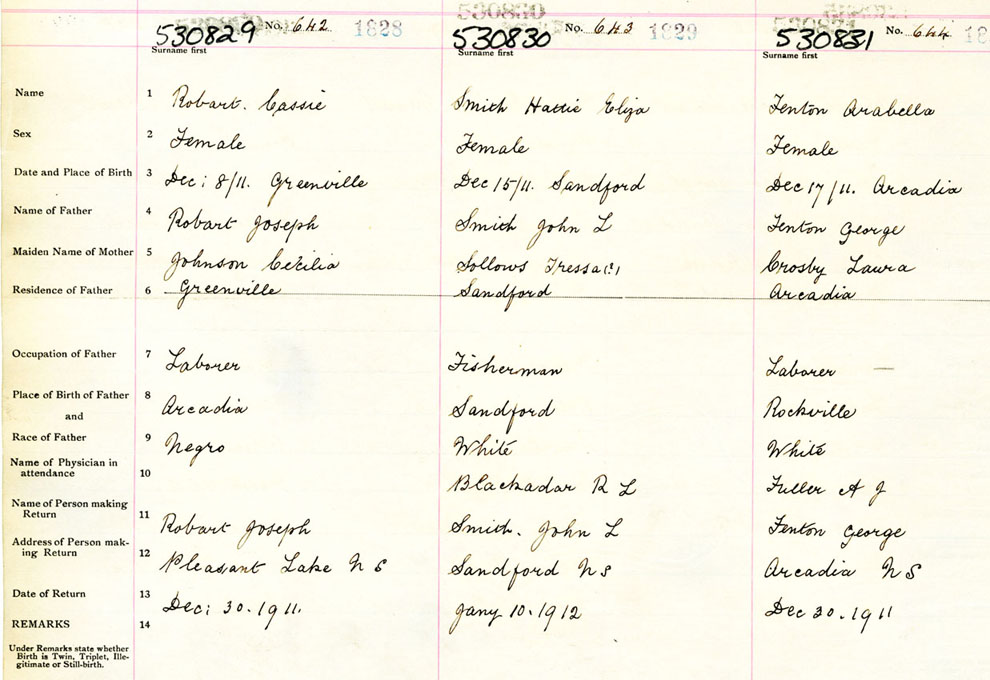 530829 No. 642 1828 530830 No. 643 1829 530831 No. 644 18
Surname first Surname first Surname first
Name 1 Robart. Cassie Smith Hattie Eliza Fenton Arabella
Sex 2 Female Female Female
Date and Place of Birth 3 Dec: 8/11. Greenville Dec 15/11. Sandford Dec 17/11. Arcadia
Name of Father 4 Robart Joseph Smith John L Fenton George
Maiden Name of Mother 5 Johnson Cecilia Sollows Tressa Crosby Laura
Residence of Father 6 Greenville Sandford Arcadia
Occupation of Father 7 Laborer Fisherman Laborer —
Place of Birth of Father 8 Arcadia Sandford Rockville
and
Race of Father 9 Negro White White
Name of Physician in
attendance 10 Blackadar R L Fuller A J
Name of Person making
Return 11 Robart Joseph Smith. John L Fenton George
Address of Person mak-
ing Return 12 Pleasant Lake N S Sandford N S Arcadia N S
Date of Return 13 Dec: 30.1911. Jany 10.1912 Dec 30.1911
REMARKS 14
Under Remarks state whether
Birth is Twin, Triplet, Ille-
gitimate or Still-birth.